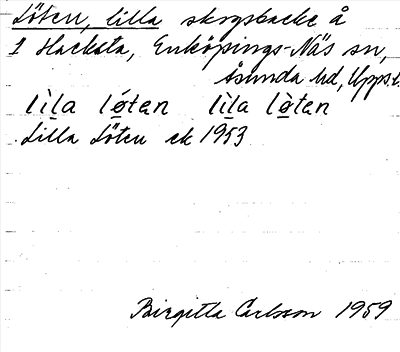 Löten, lilla skogsbacke å
1 Hacksta, Enköpings-Näs sn,
Åsunda hd, Upps.l.
lìla lǿtan lìla lø̀tan
Lilla Löten ek 1953
Birgitta Carlsson 1959